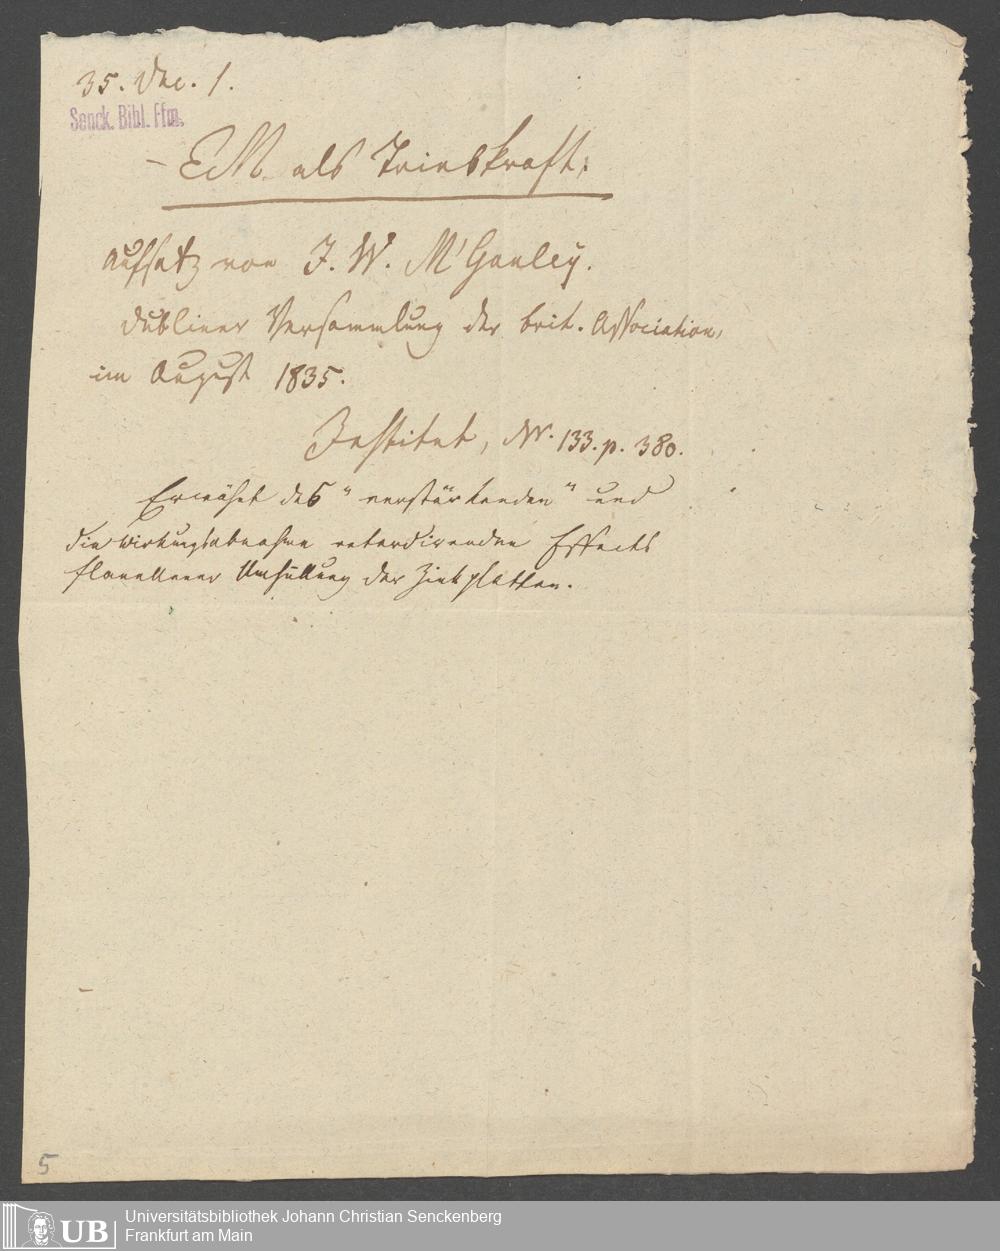 35. Dec. 1.
Senck. Bibl. Ffm.
– EM. als Triebkraft;
Aufsatz von J. W. M'Gauley.
Dubliner Versammlung der brit. Association,
im August 1835.
Institut, Nr. 133. p. 380.
Erwähnt des "verstärkenden" und
die Wirkungsabnahme retardirenden Effects
flanellener Umhüllung der Zinkplatten.
5
UB
Universitätsbibliothek Johann Christian Senckenberg
Frankfurt am Main